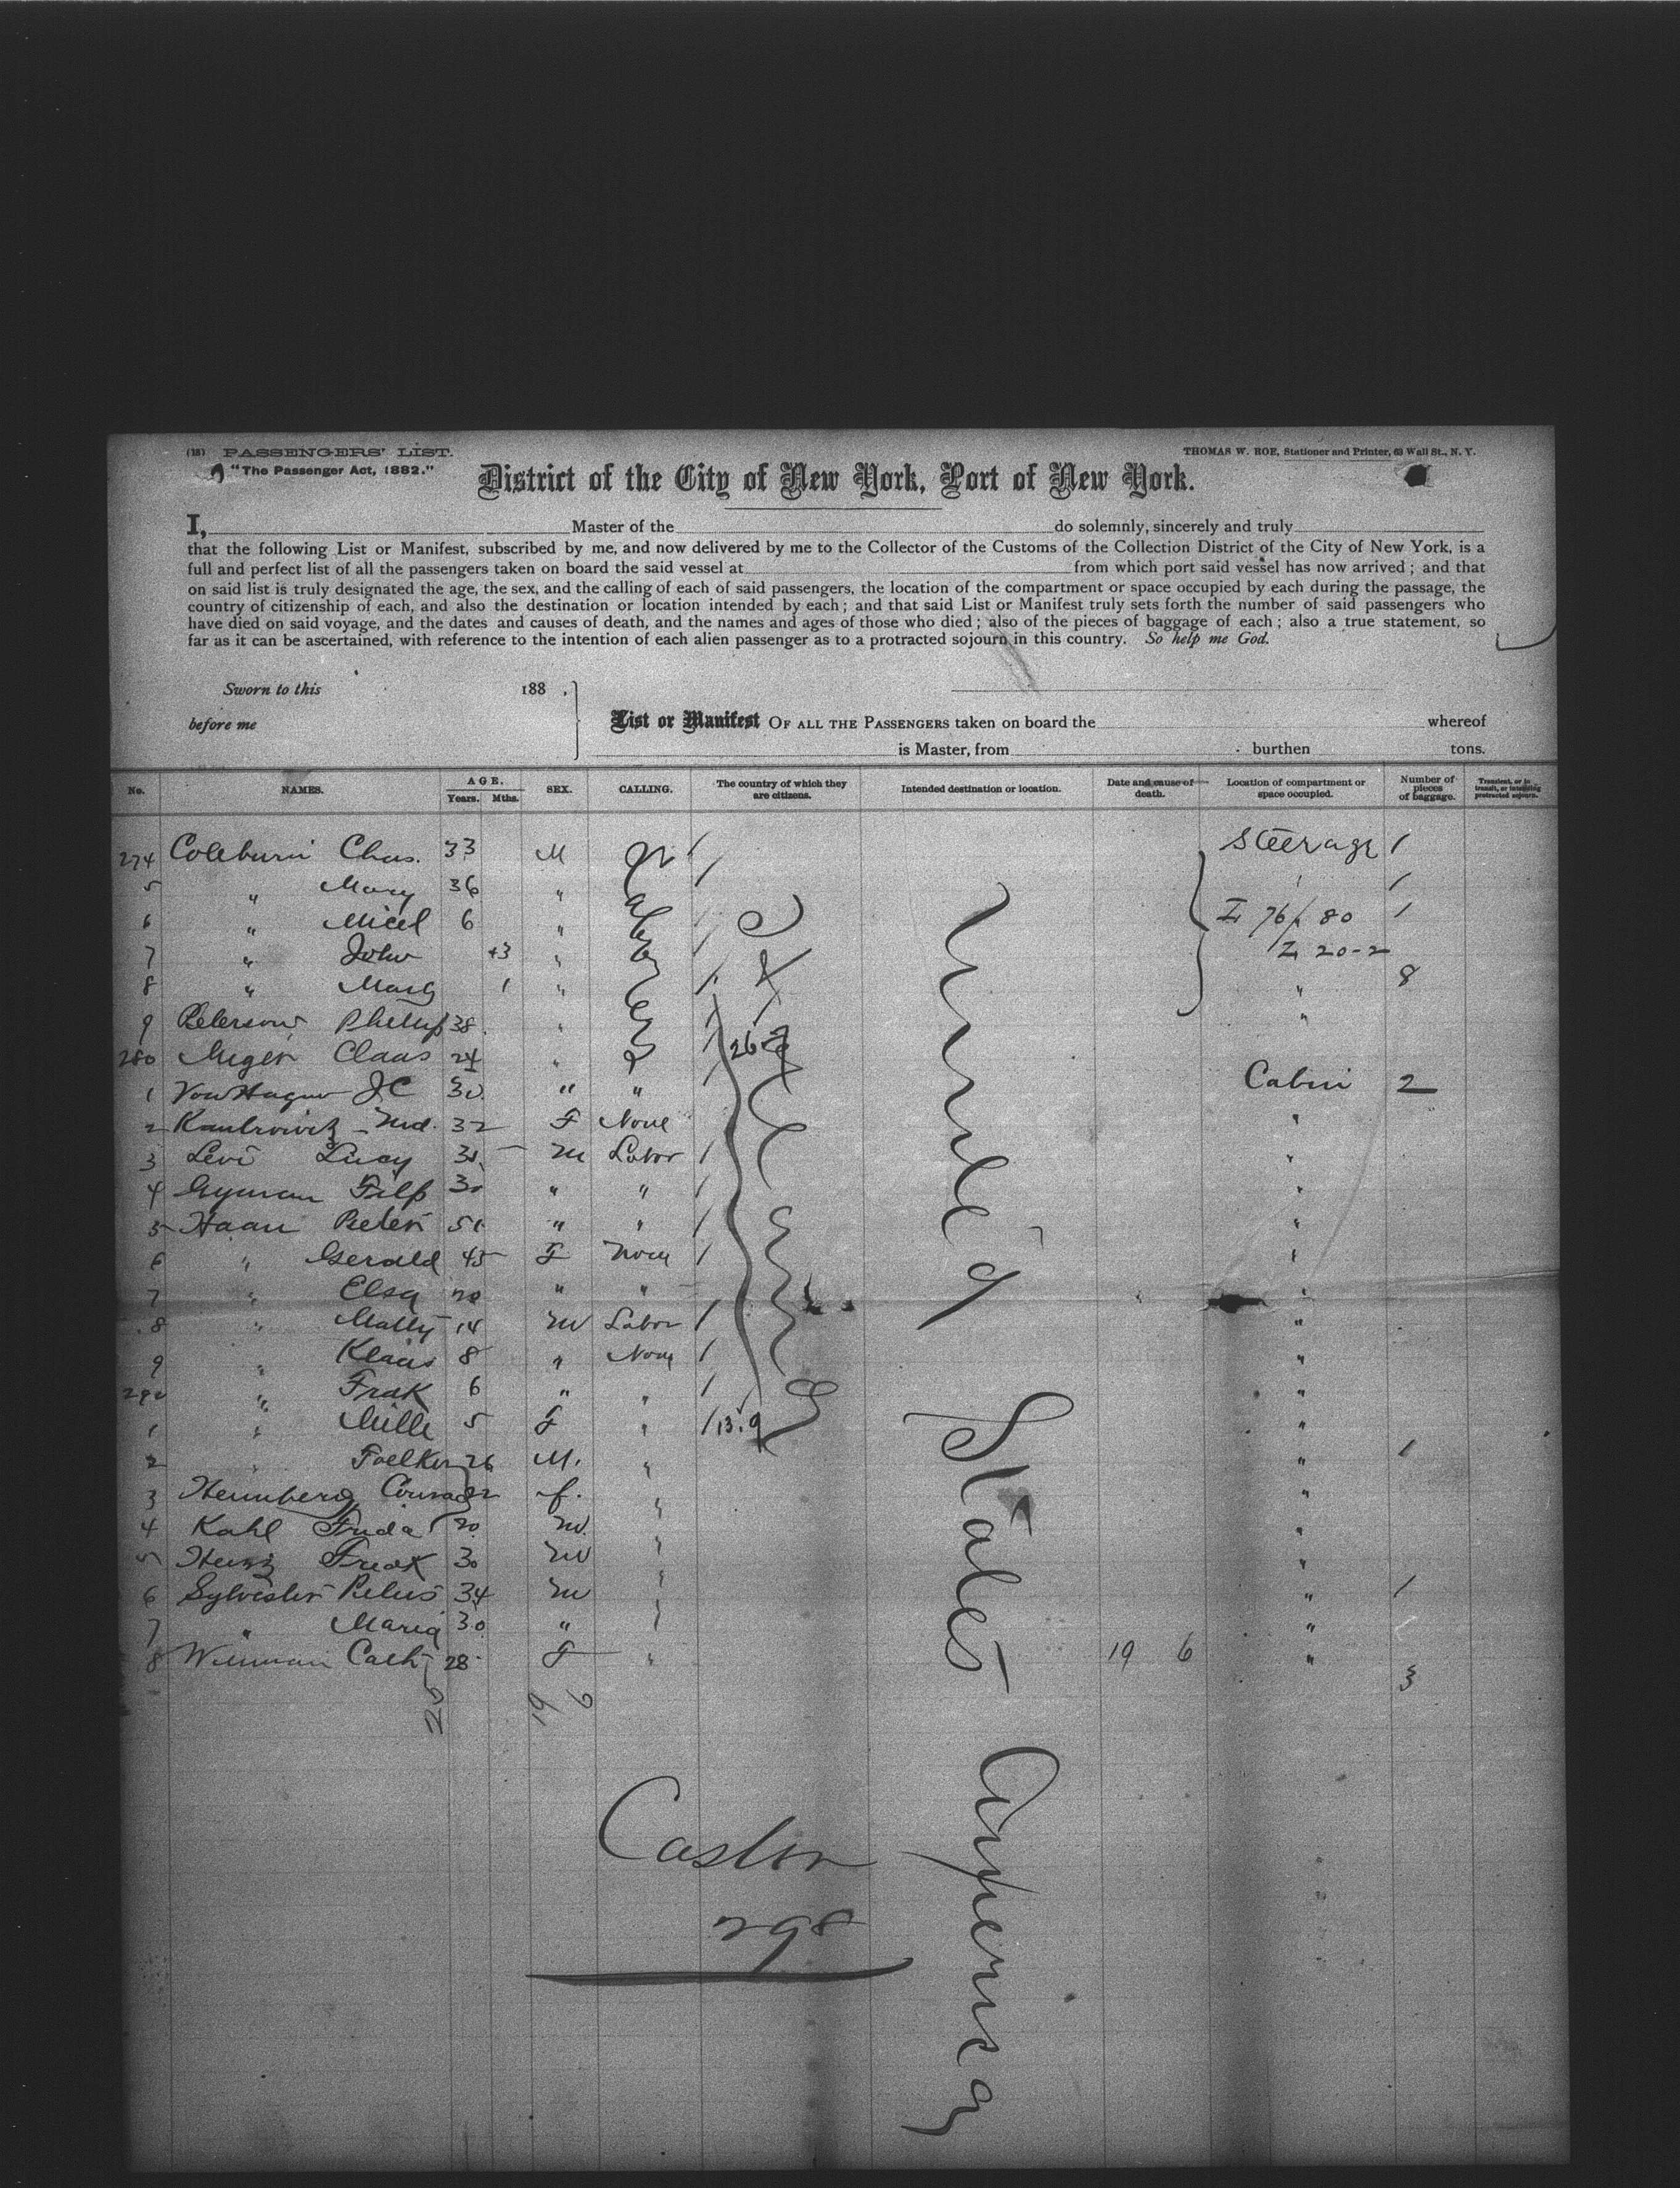 (18) PASSENGERS' LIST.
THOMAS W. ROE, Stationer and Printer, 63 Wall St., N. Y.
"The Passenger Act, 1882."
District of the City of New York, Port of New York.
I, Master of the do solemnly, sincerely and truly
that the following List or Manifest, subscribed by me, and now delivered by me to the Collector of the Customs of the Collection District of the City of New York, is a
full and perfect list of all the passengers taken on board the said vessel at from which port said vessel has now arrived ; and that
on said list is truly designated the age, the sex, and the calling of each of said passengers, the location of the compartment or space occupied by each during the passage, the
country of citizenship of each, and also the destination or location intended by each ; and that said List or Manifest truly sets forth the number of said passengers who
have died on said voyage, and the dates and causes of death, and the names and ages of those who died ; also of the pieces of baggage of each ; also a true statement, so
far as it can be ascertained, with reference to the intention of each alien passenger as to a protracted sojourn in this country. So help me God.
Sworn to this 188 .
before me
List or Manifest OF ALL THE PASSENGERS taken on board the whereof
is Master, from burthen tons.
No. NAMES. AGE. Years. Mths. SEX. CALLING. The country of which they are citizens. Intended destination or location. Date and cause of death. Location of compartment or space occupied. Number of pieces of baggage. Transient, or in transit, or intending protracted sojourn.
274 Coleburn Chas. 33 M / Steerage 1
5 " Mary 36 " / 1
6 " Micel 6 " / 76/80 1
7 " John " / 20-2
8 " Mary 1 " / " 8
9 Peterson Phillip 38 " / "
280 Claas 24 " / 26
1 Von Hagen JC 30 " " Cabin 2
2 32 F None "
3 Levi Lucy M Labor / "
4 Filp 30 " " / "
5 Haan Pieter 51 " " / "
6 " Gerald 45 F None / "
7 " Elsa 20 " " "
8 " 14 M Labor / "
9 " Klaas 8 " None / "
290 " Frak 6 " " / "
1 " Mille 5 F " / "
2 " Foelker 26 M. " " 1
3 Conrad 22 f. " "
4 Kahl Frida 20 M. " "
5 30 M " "
6 Sylvester 34 M " " 1
7 " Maria 30 " " "
8 Cath 28 F " 19 6 " 3
25 19 6
United States America
Castor
298